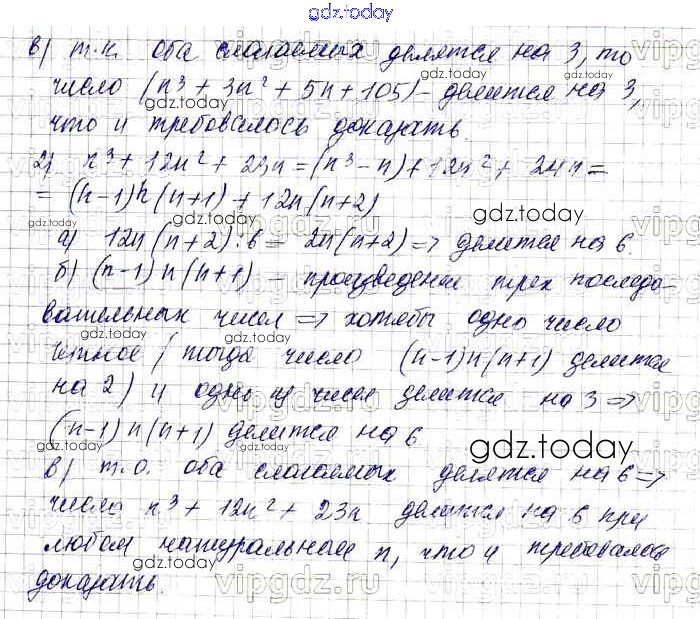 gdz.today
в) т.к. оба слагаемых делятся на 3, то
число (n³ + 3n² + 5n + 105) - делится на 3,
что и требовалось доказать.
2) n³ + 12n² + 23n = (n³ - n) + 12n² + 24n =
= (n-1)n(n+1) + 12n(n+2)
а) 12n(n+2):6 = 2n(n+2) => делится на 6.
б) (n-1)n(n+1) - произведение трех последо-
вательных чисел => хотябы одно число
четное (тогда число (n-1)n(n+1) делится
на 2) и одно из чисел делится на 3 =>
(n-1)n(n+1) делится на 6
в) т.о. оба слагаемых делятся на 6 =>
число n³ + 12n² + 23n делится на 6 при
любом натуральном n, что и требовалось
доказать.